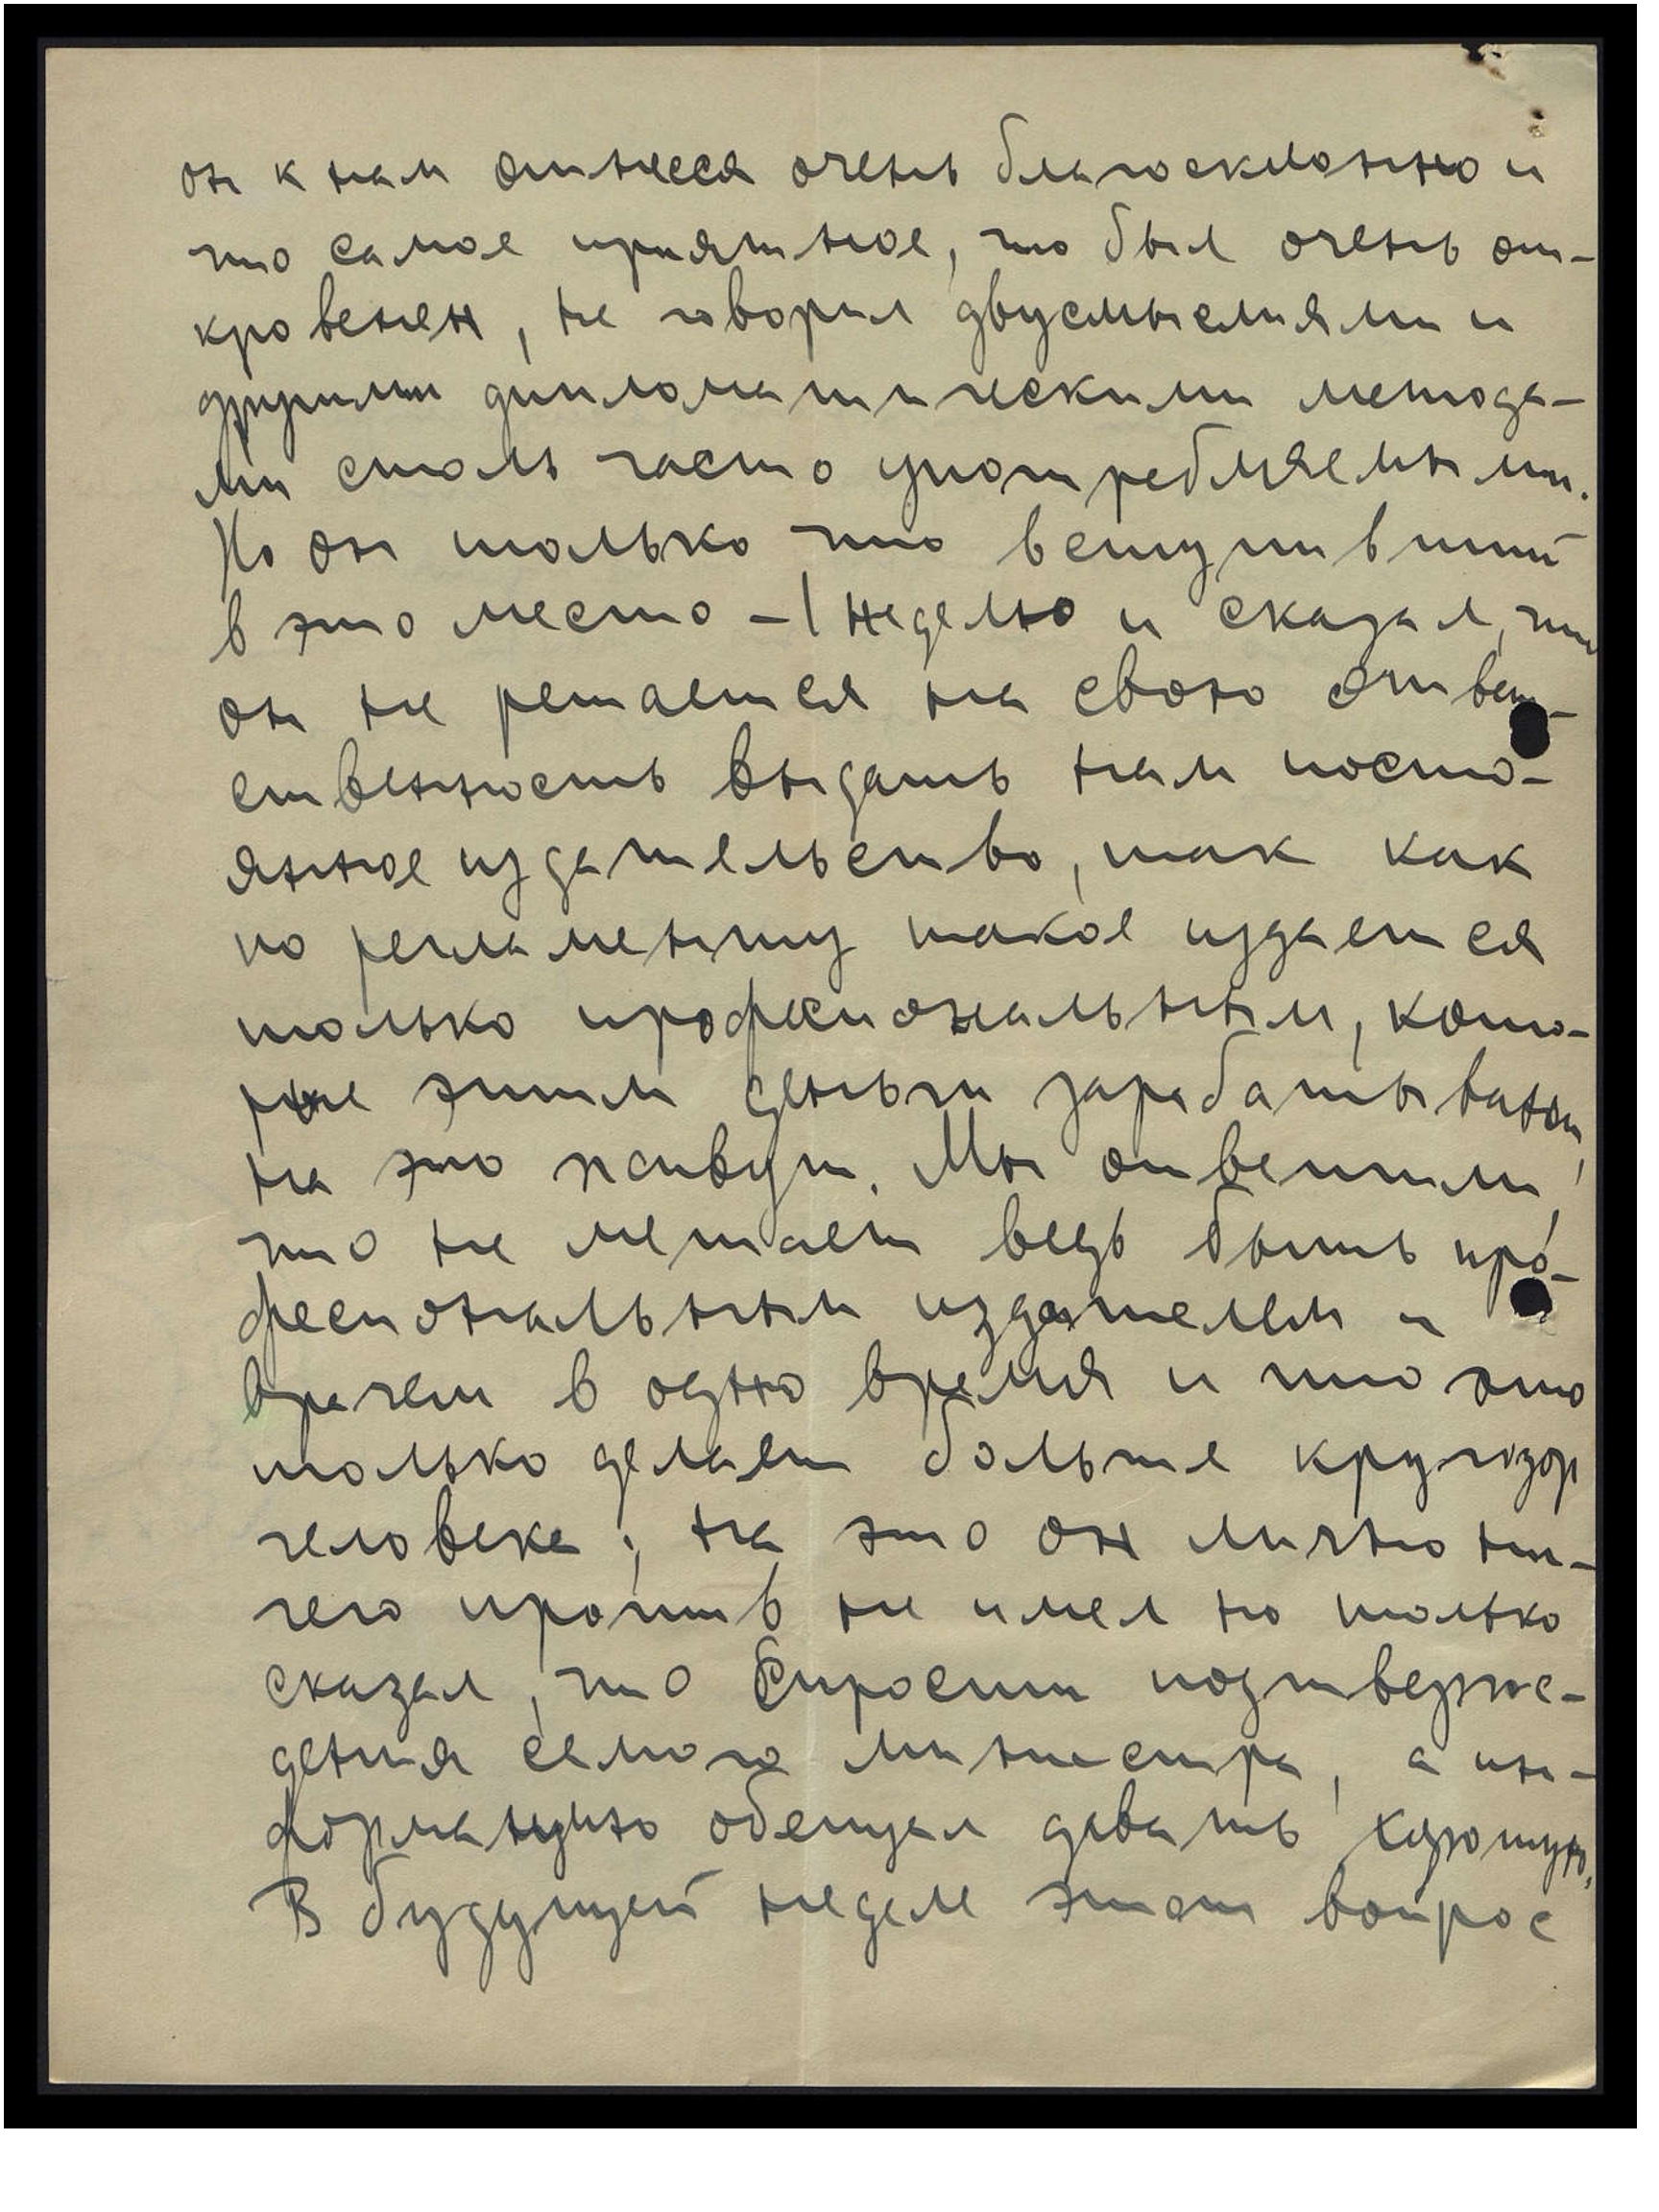 он к нам отнесся очень благосклонно и
что самое приятное, что был очень от-
кровенен, не говорил двусмыслиями и
другими дипломатическими метода-
ми столь часто употребляемыми.
Но он только что вступивший
в это место - 1 неделю и сказал, что
он не решается на свою ответ-
ственность выдать нам посто-
янное издательство, так как
по регламенту такое издается
только професиональным, кото-
рые этим деньги зарабатывают,
на это живут. Мы ответили,
что не мешает ведь быть про-
фесиональным издателем и
врачем в одно время и что это
только делает больше кругозор
человека; на это он лично ни-
чего против не имел но только
сказал, что спросит подтверж-
дения самого министра, а ин-
формацию обещал давать хорошую.
В будущей неделе этот вопрос